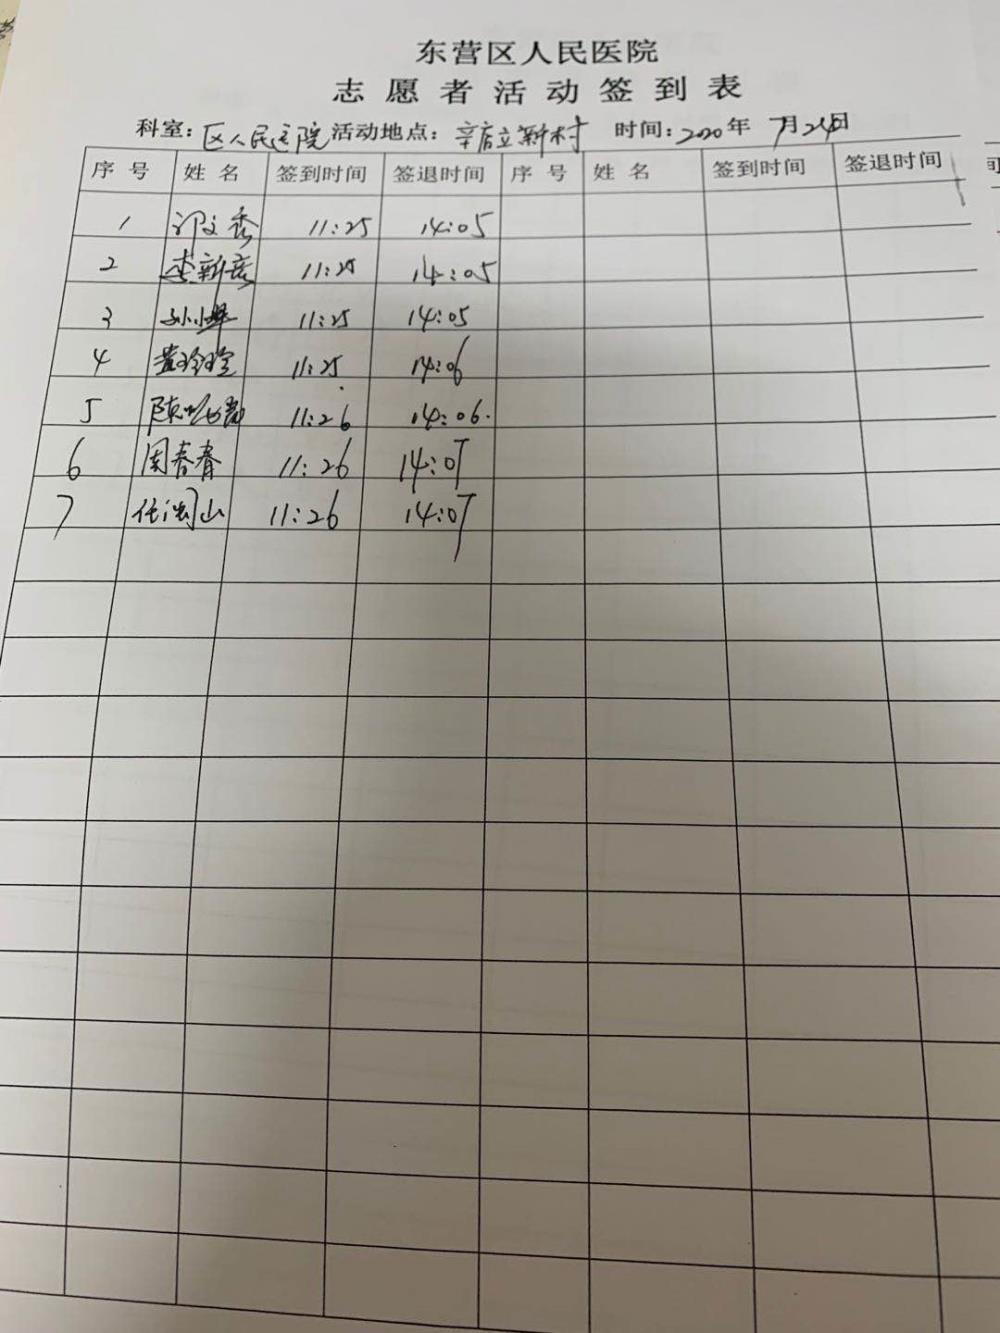 东营区人民医院
志愿者活动签到表
科室：区人民医院 活动地点：辛店立新村 时间：2020年 7月24日
序号 姓名 签到时间 签退时间 序号 姓名 签到时间 签退时间
1 文秀 11:25 14:05
2 李新 11:25 14:05
3 孙小 11:25 14:05
4 黄玲玲 11:25 14:06
5 陈 11:26 14:06.
6 周春春 11:26 14:07
7 任 山 11:26 14:07